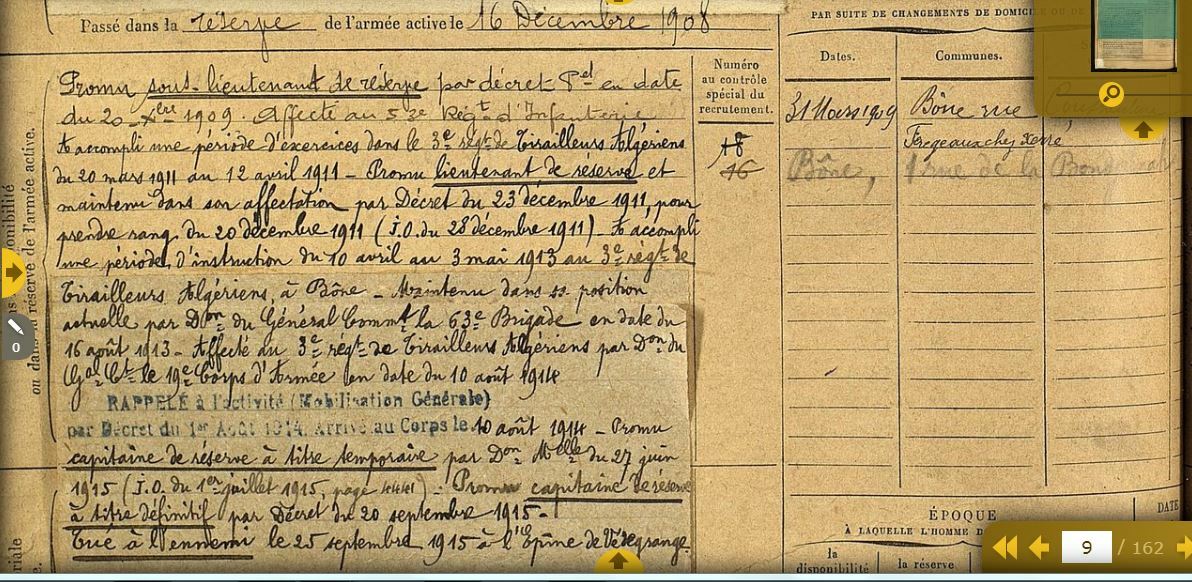 Passé dans la réserve de l'armée active le 16 Décembre 1908
Promu sous-lieutenant de réserve par décret Pel en date
du 20 Xbre 1909. Affecté au 53e Régt d'Infanterie,
A accompli une période d'exercices dans le 3e régt de Tirailleurs Algériens
du 20 mars 1911 au 12 avril 1911 - Promu lieutenant de réserve et
maintenu dans son affectation par Décret du 23 décembre 1911, pour
prendre rang du 20 décembre 1911 (J.O. du 28 décembre 1911) - A accompli
une période d'instruction du 10 avril au 3 mai 1913 au 3e régt de
Tirailleurs Algériens, à Bône - Maintenu dans sa position
actuelle par Don du Général Commt la 63e Brigade en date du
16 août 1913 - Affecté au 3e régt de Tirailleurs Algériens par Don du
Gal Ct le 19e Corps d'Armée en date du 10 août 1914
RAPPELÉ à l'activité (Mobilisation Générale)
par Décret du 1er Août 1914. Arrivé au Corps le 10 août 1914 - Promu
capitaine de réserve à titre temporaire par Don Melle du 27 juin
1915 (J.O. du 1er juillet 1915, page 4441) - Promu capitaine de réserve
à titre définitif par Décret du 20 septembre 1915 -
Tué à l'ennemi le 25 septembre 1915 à l'Epine de Védegrange
ou dans la réserve de l'armée active.
Numéro
au contrôle
spécial du
recrutement.
18
16
PAR SUITE DE CHANGEMENTS DE DOMICILE OU DE
Dates.
Communes.
31 Mars 1909 Bône rue
Bône, 1 rue de la
ÉPOQUE
À LAQUELLE L'HOMME D
DATE
la
disponibilité
la réserve
9 / 162
0